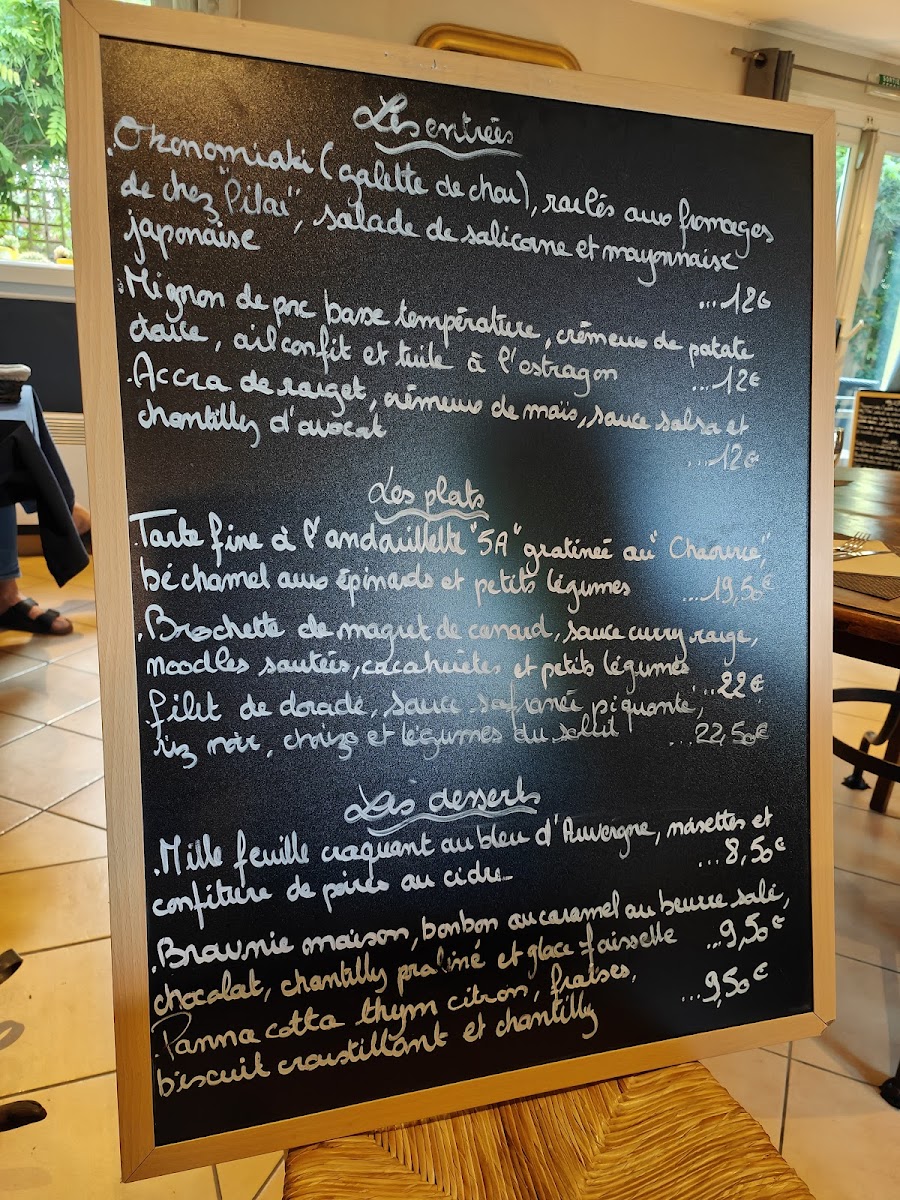 Les entrées
. Okonomiaki (galette de chou), raclés aux fromages
de chez "Pilai", salade de salicorne et mayonnaise
japonaise
...12€
. Mignon de porc basse température, crémeux de patate
douce, ail confit et tuile à l'estragon
...12€
. Accra de rouget, crémeux de maïs, sauce salsa et
chantilly d'avocat
...12€
Les plats
. Tarte fine à l'andouillette "5A" gratinée au "Chaource",
béchamel aux épinards et petits légumes ...19,50€
. Brochette de magret de canard, sauce curry rouge,
noodles sautées, cacahuètes et petits légumes
...22€
. filet de dorade, sauce safranée piquante,
riz noir, chorizo et légumes du soleil ...22,50€
Les desserts
. Mille feuille craquant au bleu d'Auvergne, noisettes et
confiture de poires au cidre
...8,50€
. Brownie maison, bonbon au caramel au beurre salé,
chocolat, chantilly praliné et glace faisselle ...9,50€
. Panna cotta thym citron, fraises,
biscuit croustillant et chantilly ...9,50€